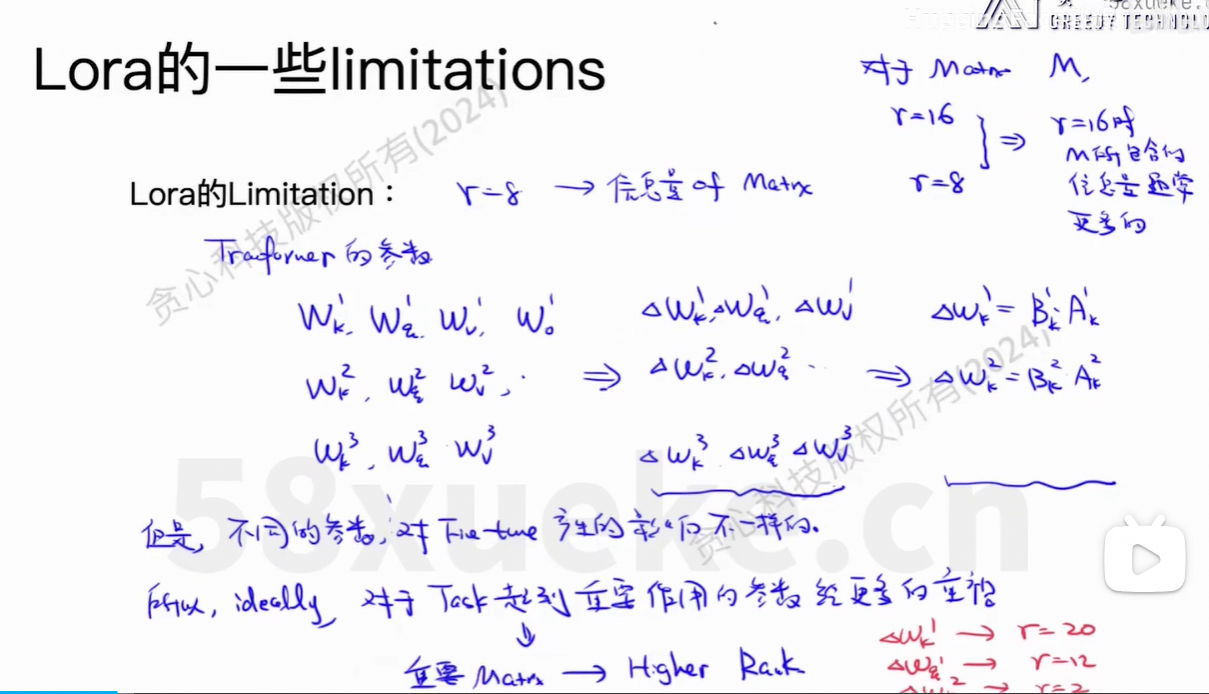 58xueke.c
GREEDY TECHNOLO
Lora的一些limitations
对于 Matrx M,
r=16
r=8
⇒ r=16时
M所包含的
信息量通常
更多的
Lora的Limitation： r=8 → 信息量 of Matrx
Traformer的参数
W_k^1, W_q^1, W_v^1, W_o^1 △W_k^1, △W_q^1, △W_v^1 △W_k^1 = B_k^1 · A_k^1
W_k^2, W_q^2 W_v^2, · ⇒ △W_k^2, △W_q^2 ·· ⇒ △W_k^2 = B_k^2 A_k^2
W_k^3, W_q^3 W_v^3 △W_k^3 △W_q^3 △W_v^3
但是, 不同的参数, 对Fie-tune 产生的影响是不一样的。
所以, ideally, 对于 Task 起到重要作用的参数 给更多的
↓
重要 Matrx → Higher Rack
△W_k^1 → r=20
△W_q^1 → r=12
→ r=2
贪心科技版权所有(2024)
贪心科技版权所有(2024)
58xueke.cn